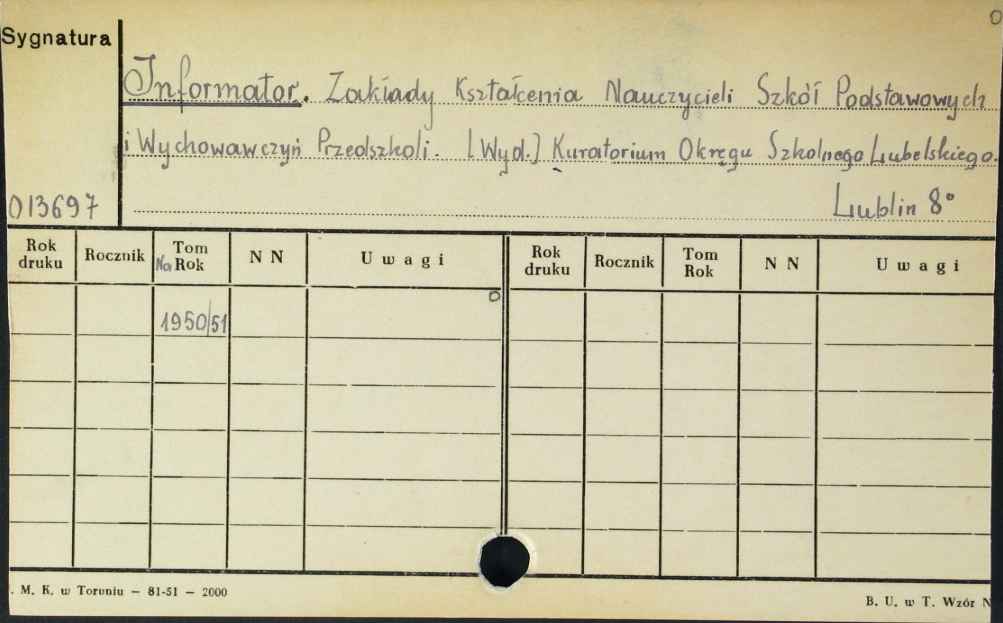 0
Sygnatura
Informator. Zakłady Kształcenia Nauczycieli Szkół Podstawowych
i Wychowawczyń Przedszkoli. [Wyd.] Kuratorium Okręgu Szkolnego Lubelskiego.
013697 Lublin 8°
Rok druku Rocznik Tom Na Rok N N Uwagi Rok druku Rocznik Tom Rok N N Uwagi
0
1950/51
. M. K. w Toruniu — 81-51 — 2000
B. U. w T. Wzór N